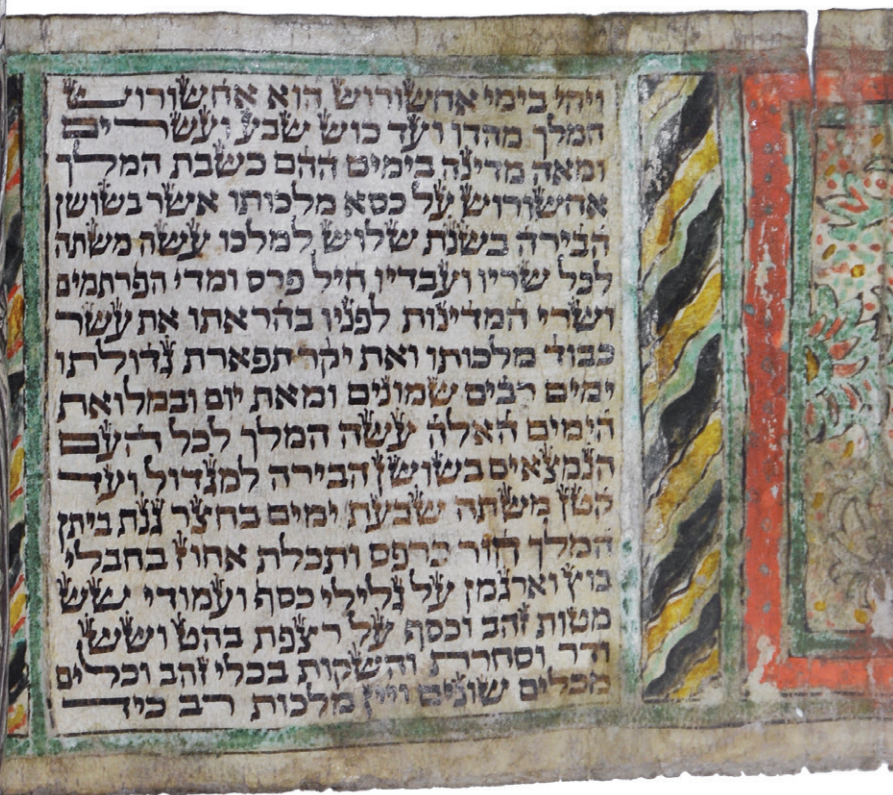 ויהי בימי אחשורוש הוא אחשורוש
המלך מהדו ועד כוש שבע ועשרים
ומאה מדינה בימים ההם כשבת המלך
אחשורוש על כסא מלכותו אשר בשושן
הבירה בשנת שלוש למלכו עשה משתה
לכל שריו ועבדיו חיל פרס ומדי הפרתמים
ושרי המדינות לפניו בהראתו את עשר
כבוד מלכותו ואת יקר תפארת גדולתו
ימים רבים שמונים ומאת יום ובמלואת
הימים האלה עשה המלך לכל העם
הנמצאים בשושן הבירה למגדול ועד
קטן משתה שבעת ימים בחצר גנת ביתן
המלך חור כרפס ותכלת אחוז בחבלי
בוץ וארגמן על גלילי כסף ועמודי שש
מטות זהב וכסף על רצפת בהט ושש
ודר וסחרת והשקות בכלי זהב וכלים
מכלים שונים ויין מלכות רב כיד